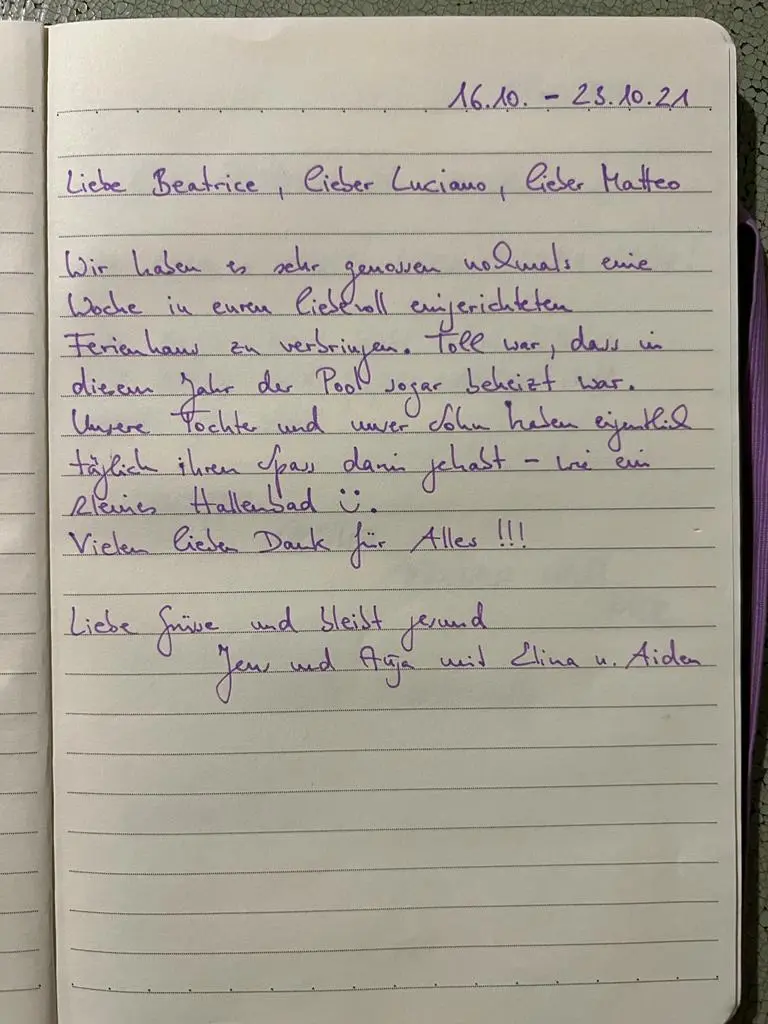 16.10. - 23.10.21
Liebe Beatrice, lieber Luciano, lieber Matteo
Wir haben es sehr genossen nochmals eine
Woche in euren liebevoll eingerichteten
Ferienhaus zu verbringen. Toll war, dass in
diesem Jahr der Pool sogar beheizt war.
Unsere Tochter und unser Sohn haben eigentlich
täglich ihren Spass darin gehabt - wie ein
kleines Hallenbad ü.
Vielen lieben Dank für Alles !!!
Liebe Grüsse und bleibt gesund
Jens und mit Elina u. Aiden